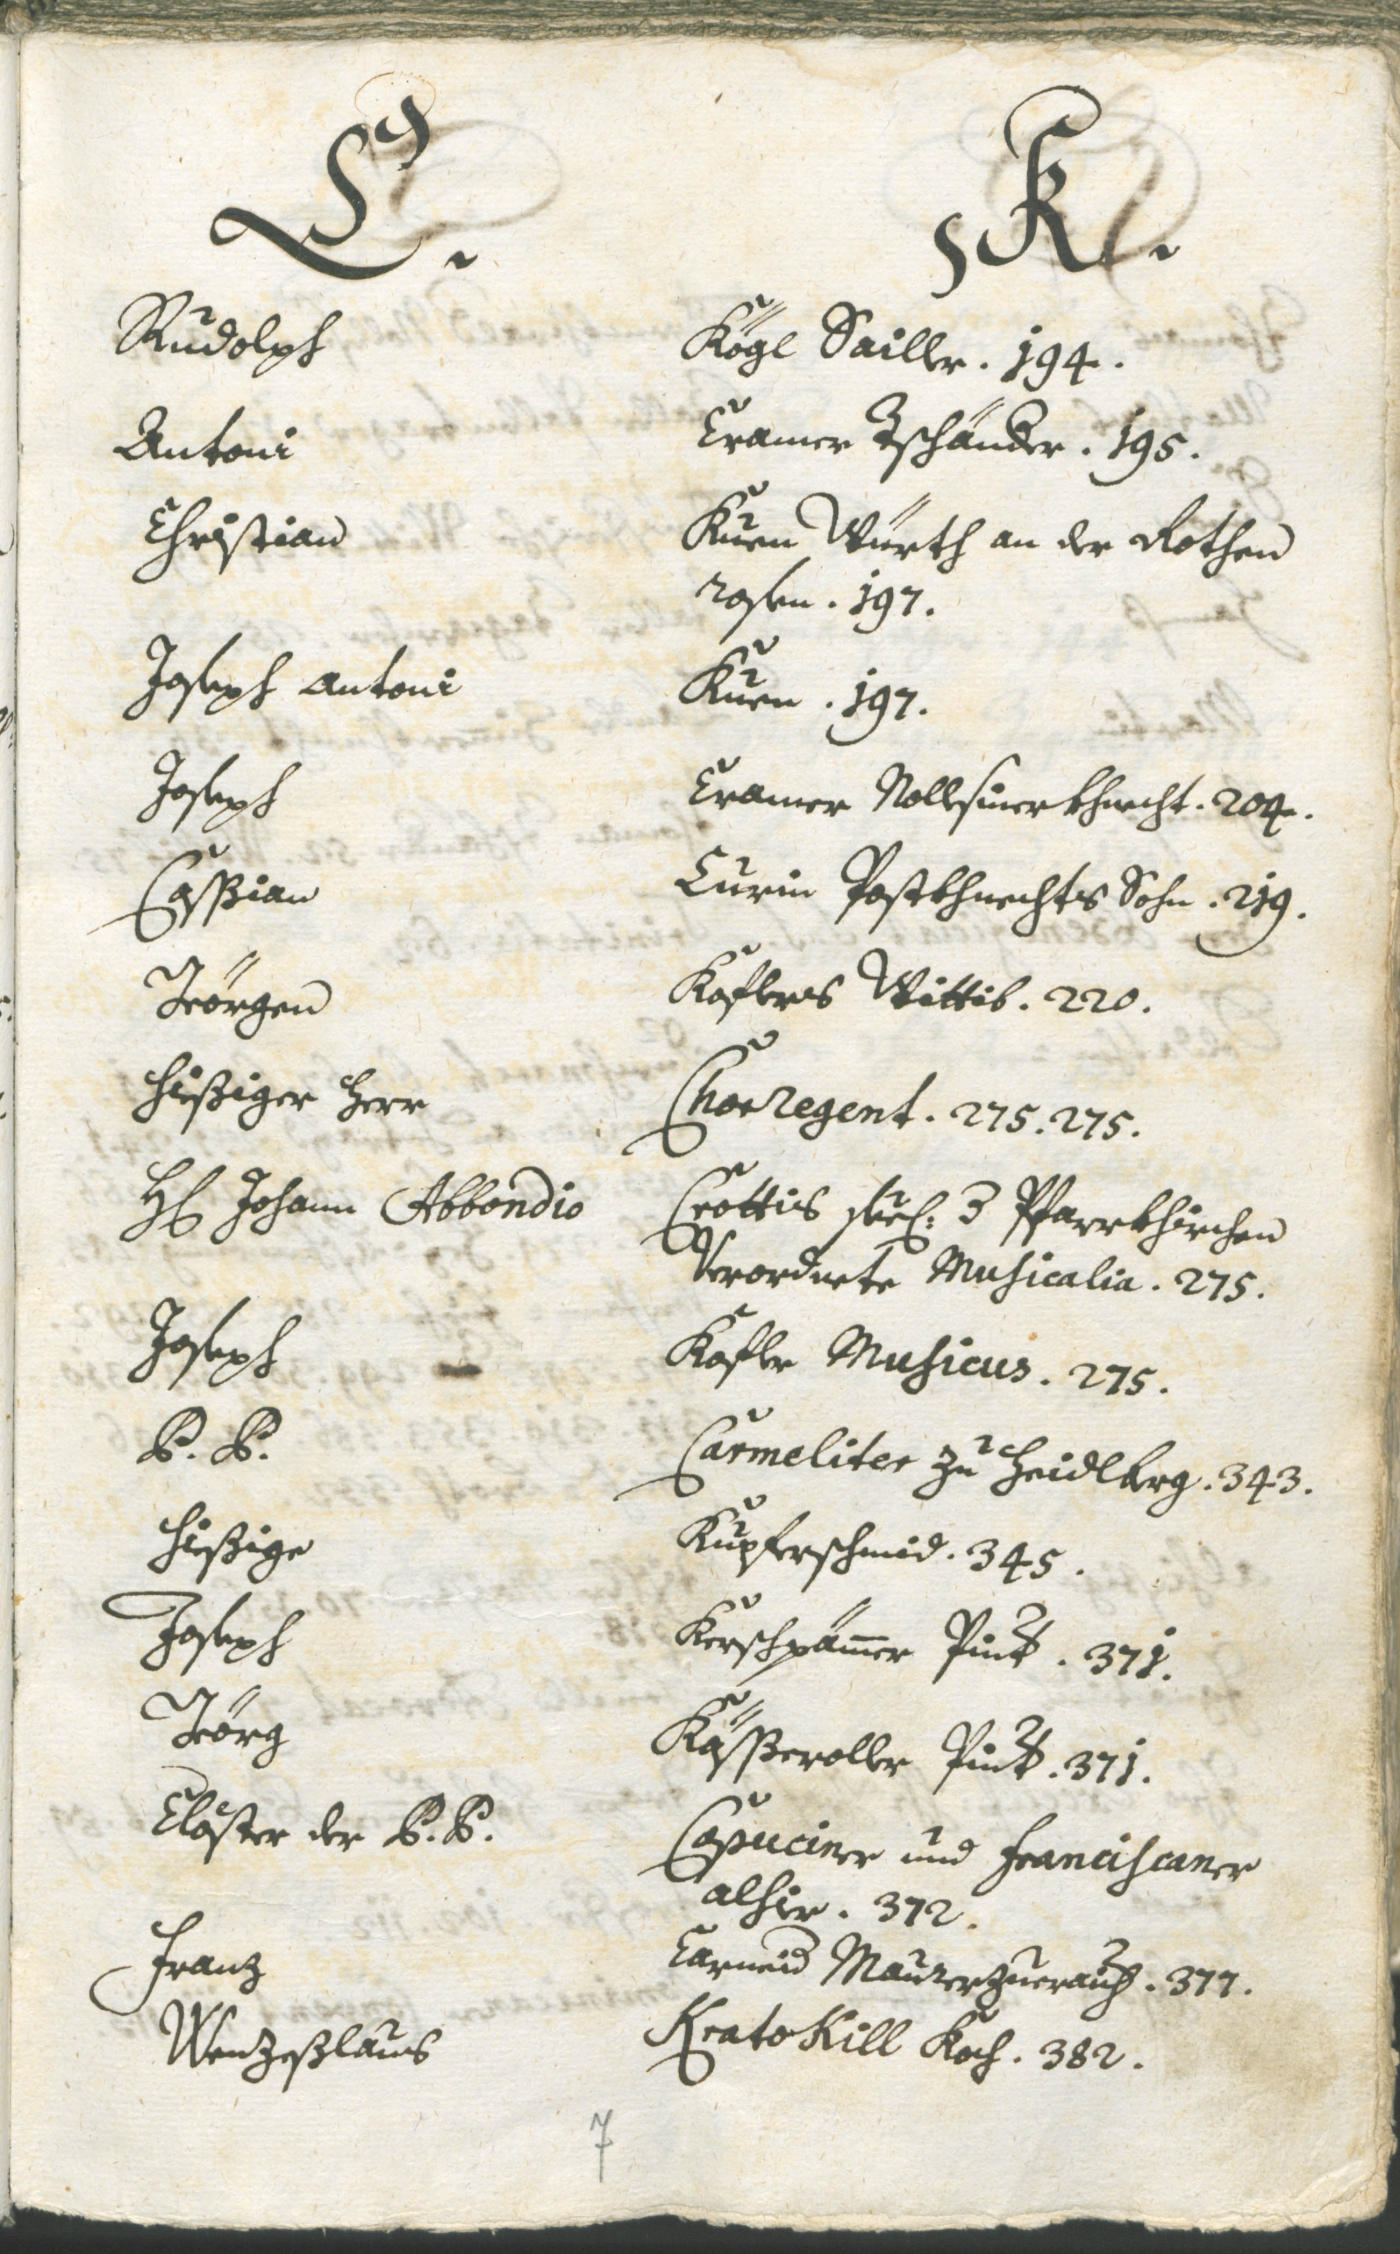 C. K.
Rudolph Kögl Sailler. 194.
Antoni Cramer Tschander. 195.
Christian Kuen Würth an der Rothen
rosen. 197.
Joseph Antoni Kuen. 197.
Joseph Cramer Nollsiner khnecht. 204.
Cassian Curin Postkhnechts Sohn. 219.
Geörgen Koflers Wittib. 220.
hießiger Herr Chorregent. 275. 275.
Hl Johann Abbondio Crottis seel: 3 Pfarrkhirchen
Verordnete Musicalia. 275.
Joseph Kofler Musicus. 275.
P. P. Carmeliter zu Heidlberg. 343.
hießige Kupferschmid. 345.
Joseph Kerschpämer Pint. 371.
Geörg Käßeroller Pint. 371.
Closter der P. P. Capuciner und Franciscaner
alhier. 372.
Franz Carneid Maurer 377.
Wenzeßlaus KratoKill Koch. 382.
7